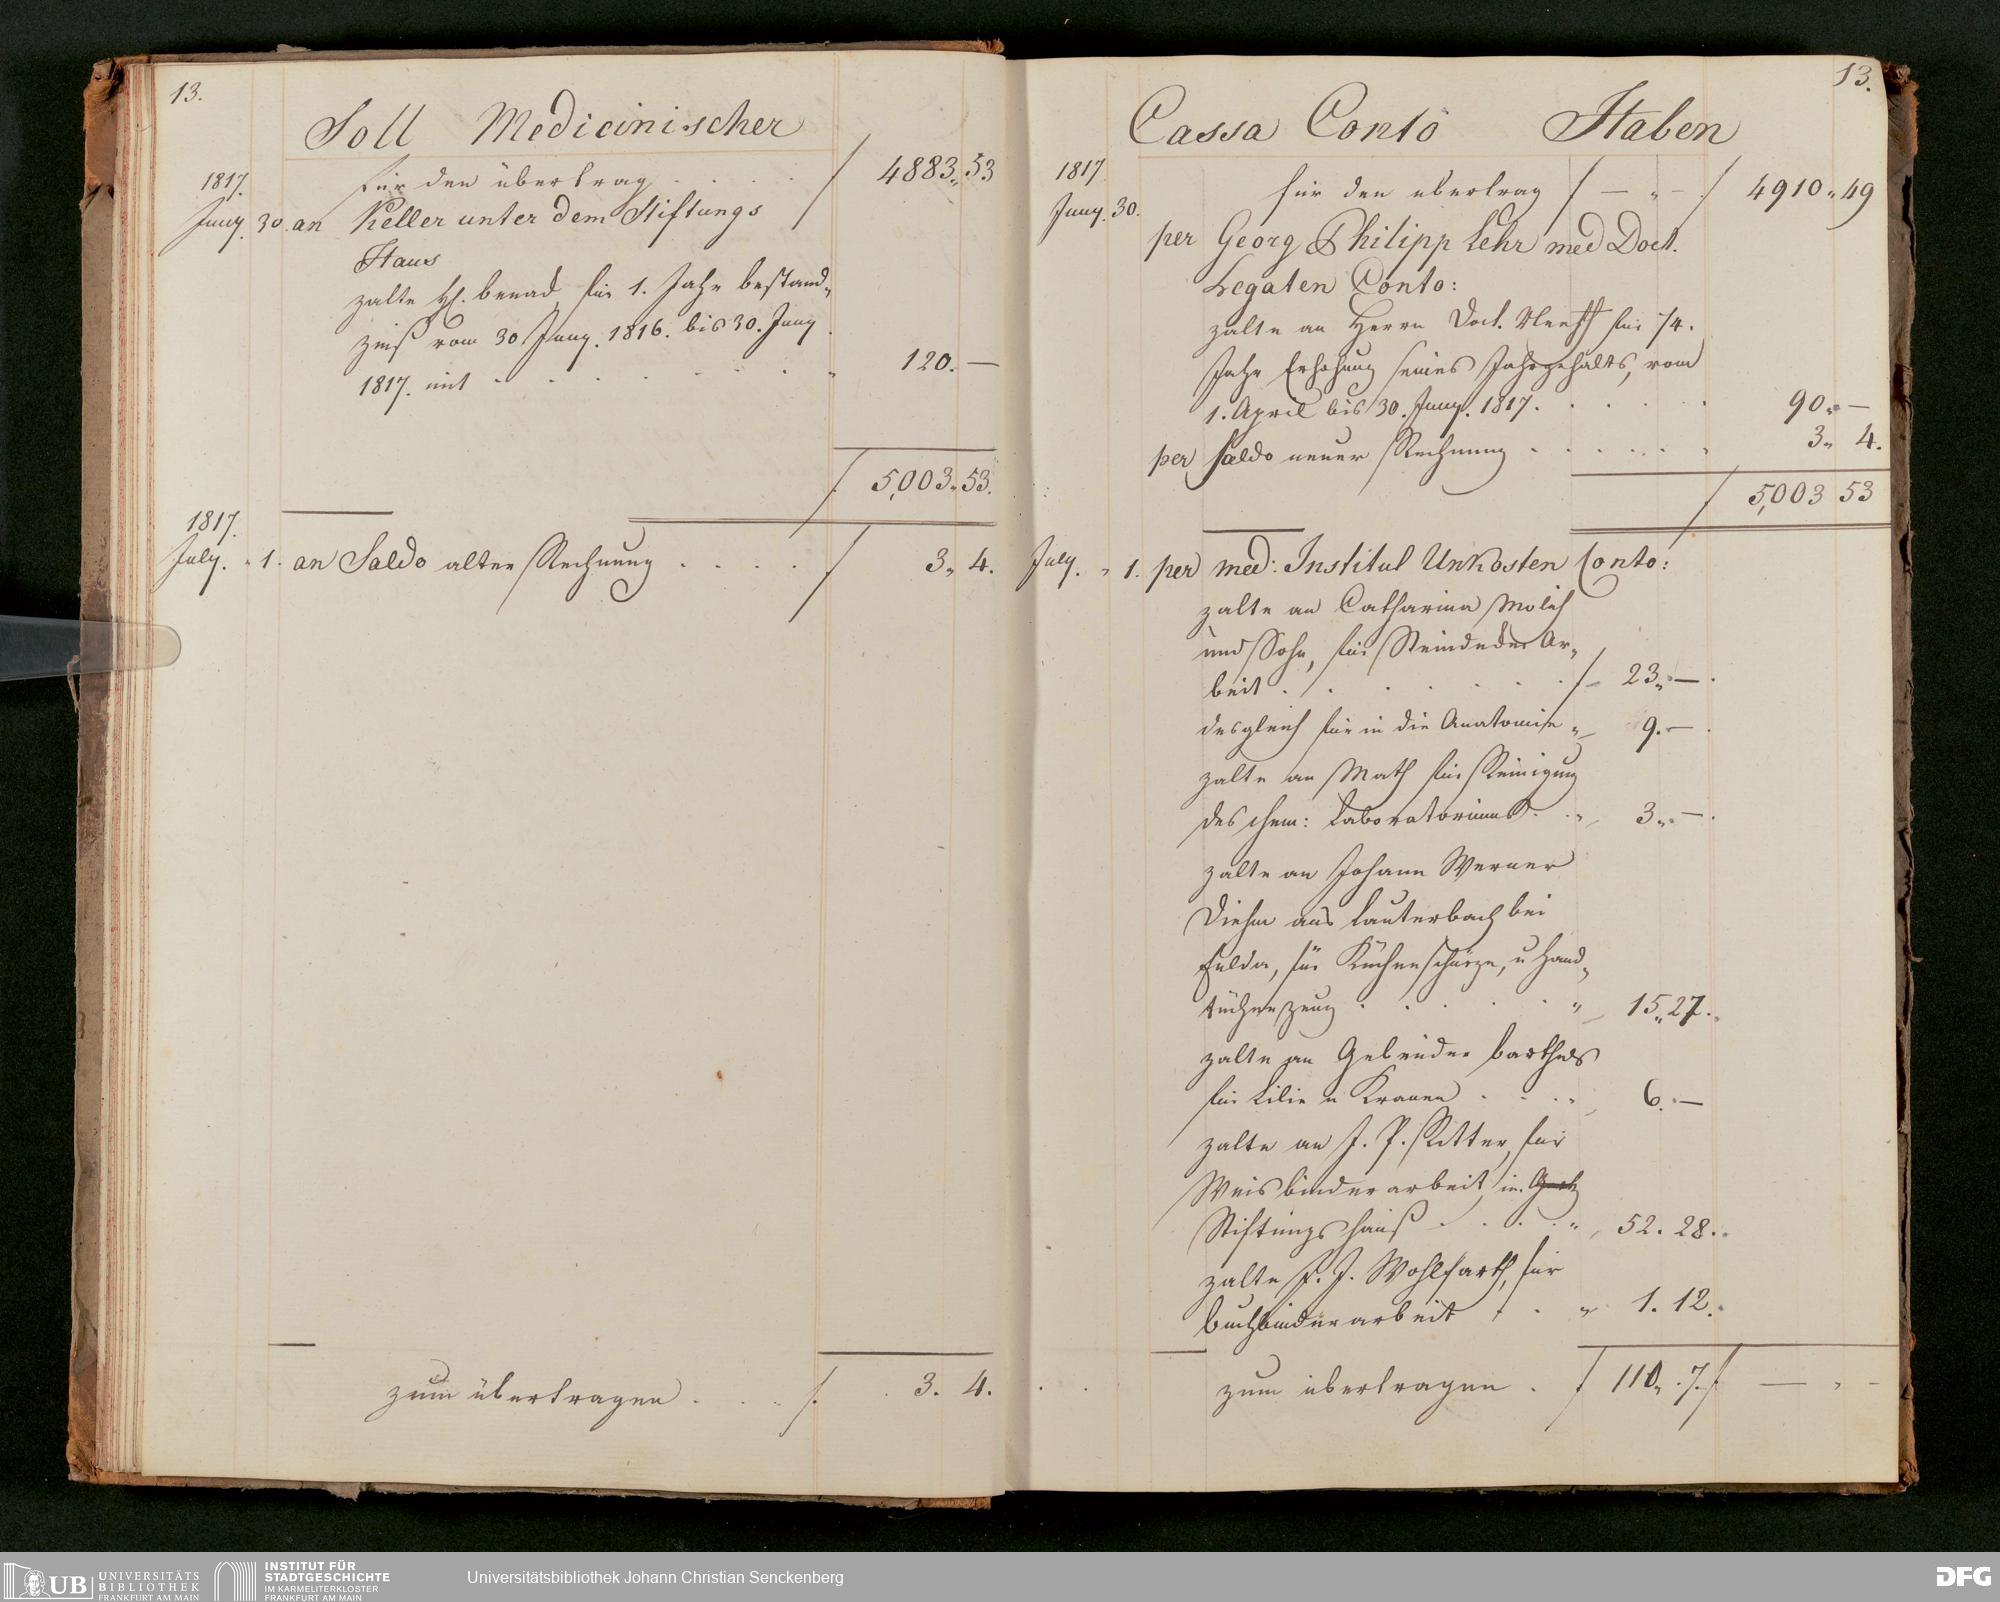 13.
Soll Medicinischer
für den übertrag . . . . f 4883„ 53
1817.
Juny. 30. an Keller unter dem Stiftungs
Haus
zalte H. benad für 1. Jahr bestand„
zinß vom 30 Juny. 1816. bis 30. Juny
1817. mit . . . . . . . „ 120. —
f 5,003„ 53.
1817.
July. „ 1. an Saldo alter Rechnung . . . . f 3„ 4.
zum übertragen . . . f. 3. 4.
13.
Cassa Conto Haben
1817
für den übertrag f — „ — f 4910„ 49
Juny. 30.
per Georg Philipp Lehr med Doct.
Legaten Conto:
zalte an Herrn Doct. für 1/4.
Jahr Erhöhung seines Jahrgehalts, vom
1. April bis 30. Juny. 1817. . . . . . 90„ —
per Saldo neuer Rechnung . . . . . . 3„ 4.
f 5,003 53
July. „ 1. per med: Institut Unkosten Conto:
zalte an Catharina Molih
und Sohn, für Steindeder Ar„
beit . . . . . . . f 23„ — .
desgleich für in die Anatomie „ 9. — .
zalte an Math für Reinigung
des chem: Laboratoriums . . „ 3„ — .
zalte an Johann Werner
Diehm aus Lauterbach bei
Fulda, für Küchenschürze, u Hand„
tücherzeug . . . . . „ 15„ 27.
zalte an Gebrüder Barthels
für Lilie u Kranen . . . „ 6. —
zalte an J. P. Ritter, für
Weisbinderarbeit, im
Stiftungshauß . . . . „ 52. 28.
zalte F. J. Wohlfarth, für
Buchbinderarbeit . . „ 1. 12.
zum übertragen . f 110„ 7. f — „ —
UB UNIVERSITÄTS
BIBLIOTHEK
FRANKFURT AM MAIN
INSTITUT FÜR
STADTGESCHICHTE
IM KARMELITERKLOSTER
FRANKFURT AM MAIN
Universitätsbibliothek Johann Christian Senckenberg
DFG